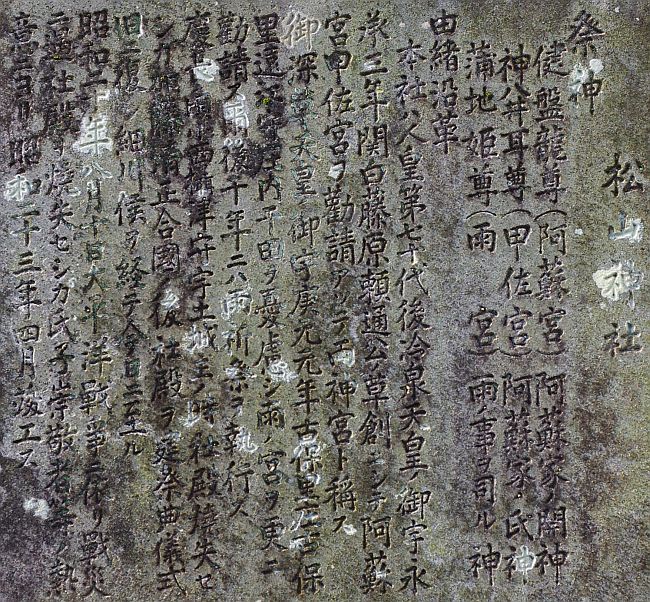 松山神社
祭神
健盤龍尊(阿蘇宮)阿蘇家ノ開神
神八井耳尊(甲佐宮)阿蘇家ノ氏神
蒲地姫尊(雨宮)雨ノ事ヲ司ル神
由緒沿革
本社ハ人皇第七十代後冷泉天皇ノ御宇永
承三年関白藤原頼通公草創シテ阿蘇
宮甲佐宮ヲ勧請アツテ両神宮ト称ス
御深草天皇ノ御宇康元元年古保里庄古保
里 内干田ヲ憂慮シ雨ノ宮ヲ更ニ
勧請ス 後十年ニ八雨祈祭ヲ執行ス
守宇土城主ノ時社殿焼失セ
合國ノ後社殿ヲ 祭典儀式
旧ニ復シ細川侯ヲ経テ今日ニ至ル
昭和二十年八月十日大平洋戦争ニ依リ戦災
社殿ヲ焼失セシガ氏子崇敬者等ノ熱
意ニヨリ昭和二十三年四月竣工ス